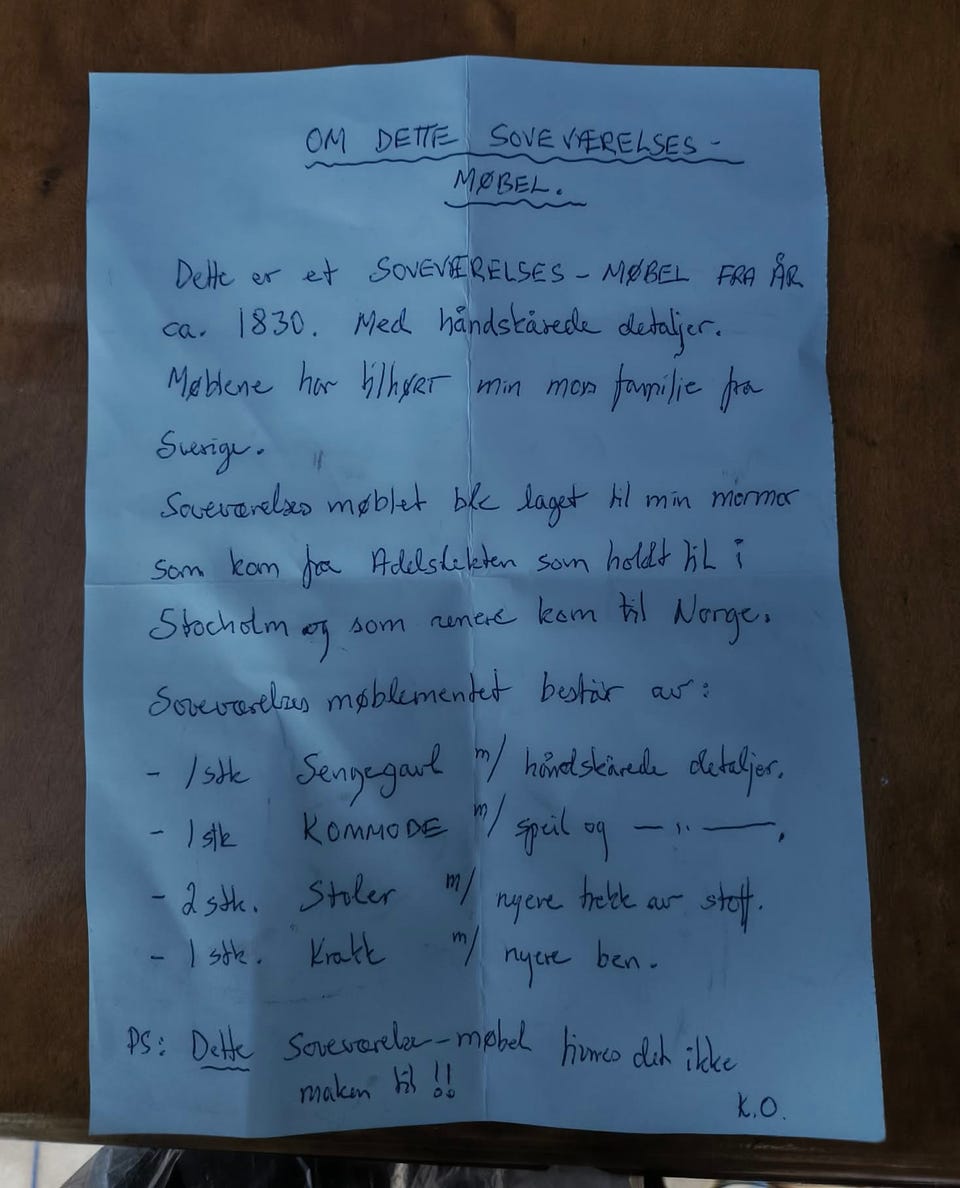 OM DETTE SOVEVÆRELSES-
MØBEL.
Dette er et SOVEVÆRELSES-MØBEL FRA ÅR
ca. 1830. Med håndskårede detaljer.
Møblene har tilhørt min mors familie fra
Sverige.
Soveværelses møblet ble laget til min mormor
som kom fra Adelslekten som holdt til i
Stocholm og som senere kom til Norge.
Soveværelses møblementet består av:
- 1 stk Sengegavl m/ håndskårede detaljer.
- 1 stk KOMMODE m/ speil og —"—.
- 2 stk. Stoler m/ nyere trekk av stoff.
- 1 stk. Krakk m/ nyere ben.
PS: Dette Soveværelse-møbel finnes det ikke
maken til !!
K.O.